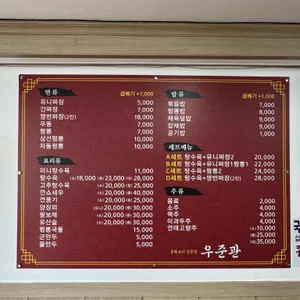 면 류 곱빼기 +1,000
유니짜장 5,000
간짜장 7,000
쟁반짜장(2인) 18,000
우동 7,000
짬뽕 7,000
삼선짬뽕 10,000
차돌짬뽕 10,000
요리류
미니탕수육 11,000
탕수육 (소)18,000 (중)23,000 (대)28,000
고추탕수육 (소)20,000 (중)25,000
깐쇼새우 (소)20,000
깐풍기 (소)20,000
양장피
팔보채
유산슬
짬뽕국물 15,000
군만두 5,000
물만두 5,000
밥 류 곱빼기 +1,000
볶음밥 7,000
짬뽕밥 8,000
제육덮밥 9,000
잡채밥 9,000
공기밥 1,000
세트메뉴
A세트 탕수육+유니짜장2 20,000
B세트 탕수육+유니짜장1짬뽕1 22,000
C세트 탕수육+짬뽕2 24,000
D세트 탕수육+쟁반짜장(2인) 28,000
주 류
음료 2,000
소주 4,000
맥주 4,000
이과두주 4,000
연태고량주 (소)10,000
(중)25,000
(대)35,000
중화요리 전문점 우준관